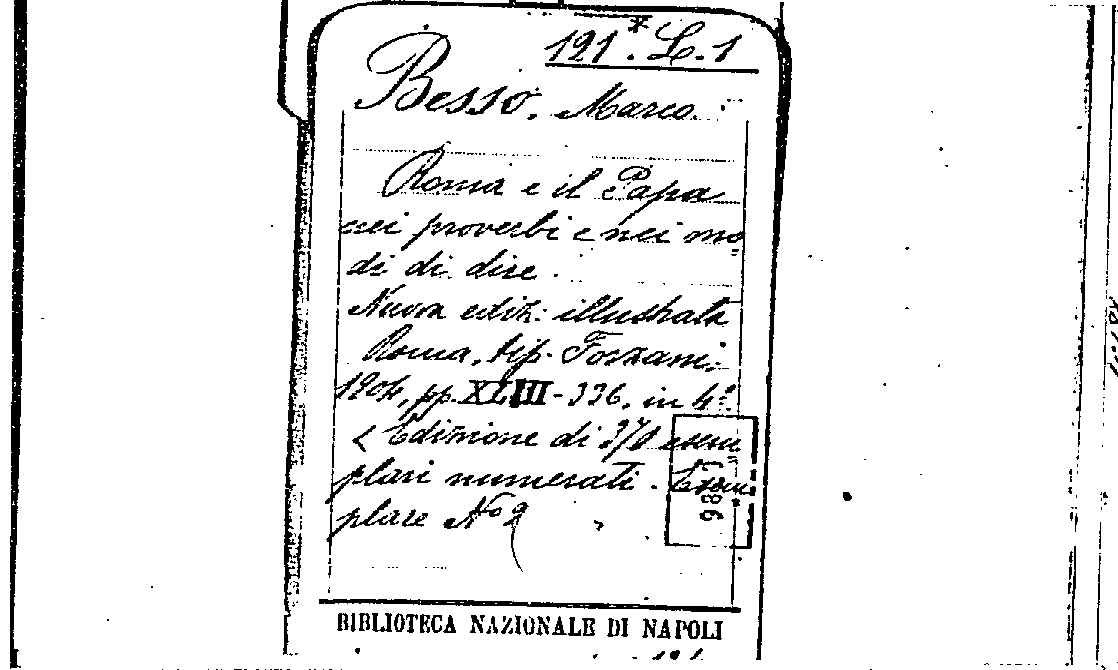 121*. L. 1
Besso, Marco.
Roma e il Papa
nei proverbi e nei mo=
di di dire.
Nuova ediz: illustrata
Roma, tip. Forzani.
1904, pp. XLIII-336. in 4°.
Edizione di 370 esem=
plari numerati. Esem=
plare N° 2
86
BIBLIOTECA NAZIONALE DI NAPOLI